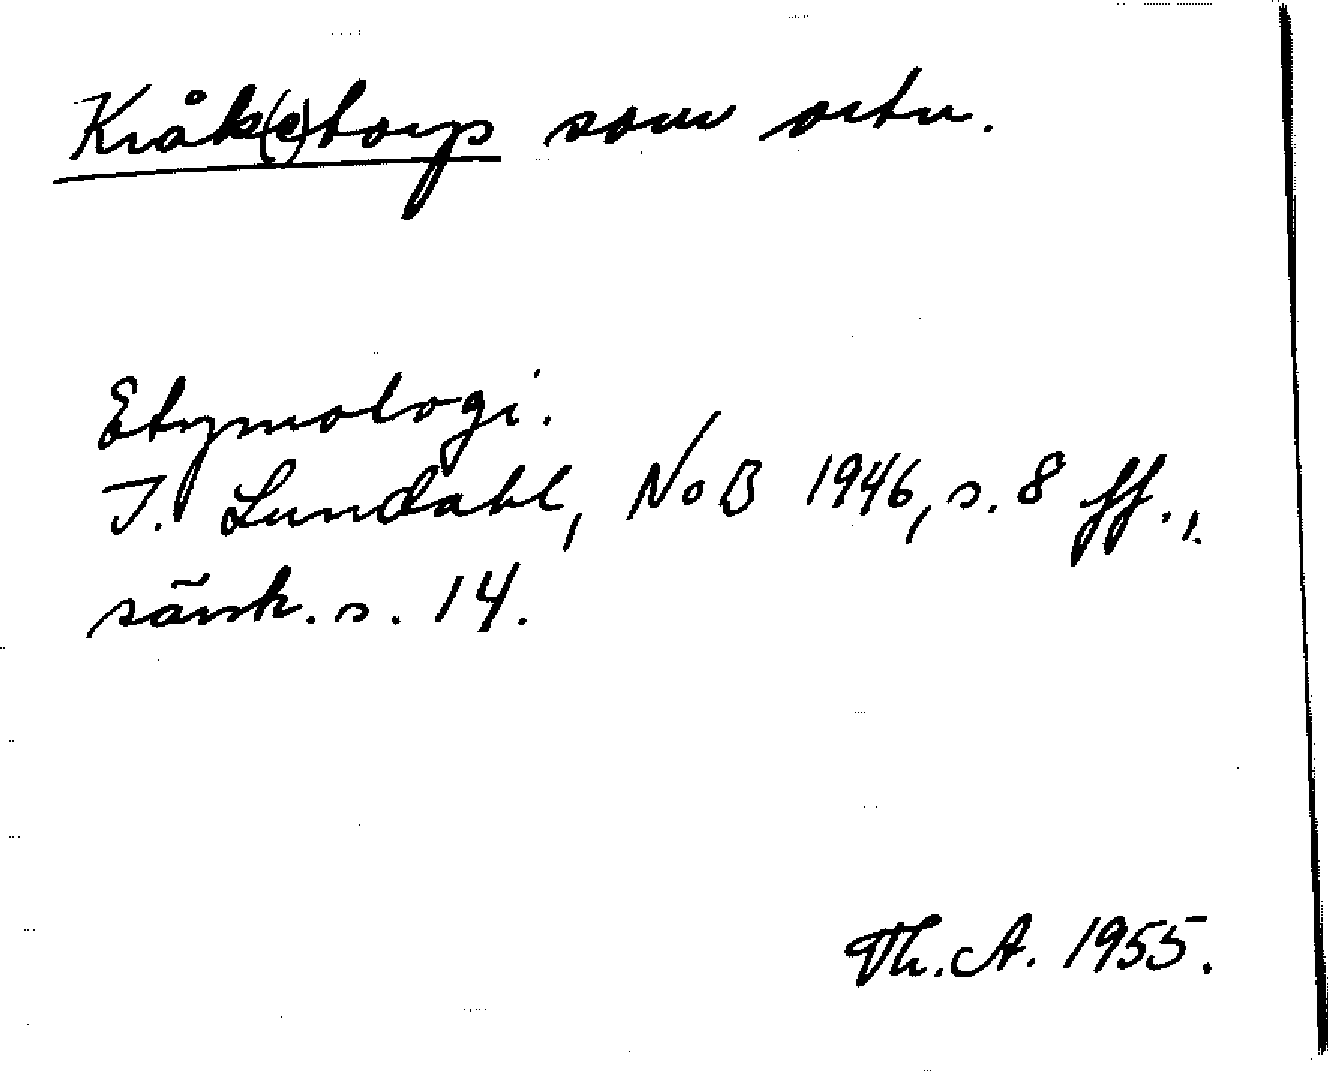 Kråk(e)torp som ortn.
Etymologi.
I. Lundahl, NoB 1946, s. 8 ff.,
särsk. s. 14.
Th. A. 1955.